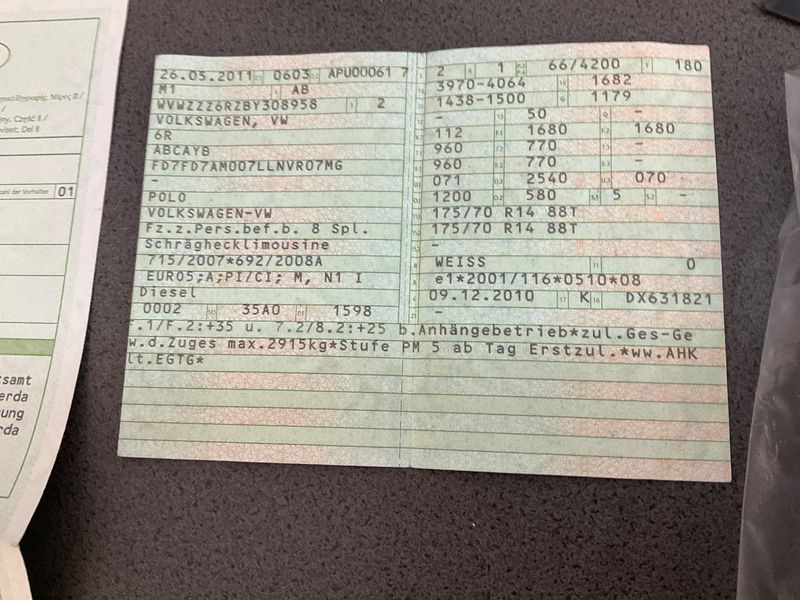 Mápos II /
ny. Część II /
viset. Del II
zahl der Vorhalter 01
tsamt
erda
ung
rda
26.05.2011 0603 APU00061 7
M1 AB
WVWZZZ6RZBY308958 2
VOLKSWAGEN, VW
6R
ABCAYB
FD7FD7AM007LLNVR07MG
-
POLO
VOLKSWAGEN-VW
Fz.z.Pers.bef.b. 8 Spl.
Schräghecklimousine
715/2007*692/2008A
EURO5;A;PI/CI; M, N1 I
Diesel
0002 35A0 1598
2 1 66/4200 180
3970-4064 1682
1438-1500 1179
- 50 -
112 1680 1680
960 770 -
960 770 -
071 2540 070
1200 580 5 -
175/70 R14 88T
175/70 R14 88T
-
WEISS 0
e1*2001/116*0510*08
09.12.2010 K DX631821
-
F.1/F.2:+35 u. 7.2/8.2:+25 b.Anhängebetrieb*zul.Ges-Ge
w.d.Zuges max.2915kg*Stufe PM 5 ab Tag Erstzul.*ww.AHK
lt.EGTG*